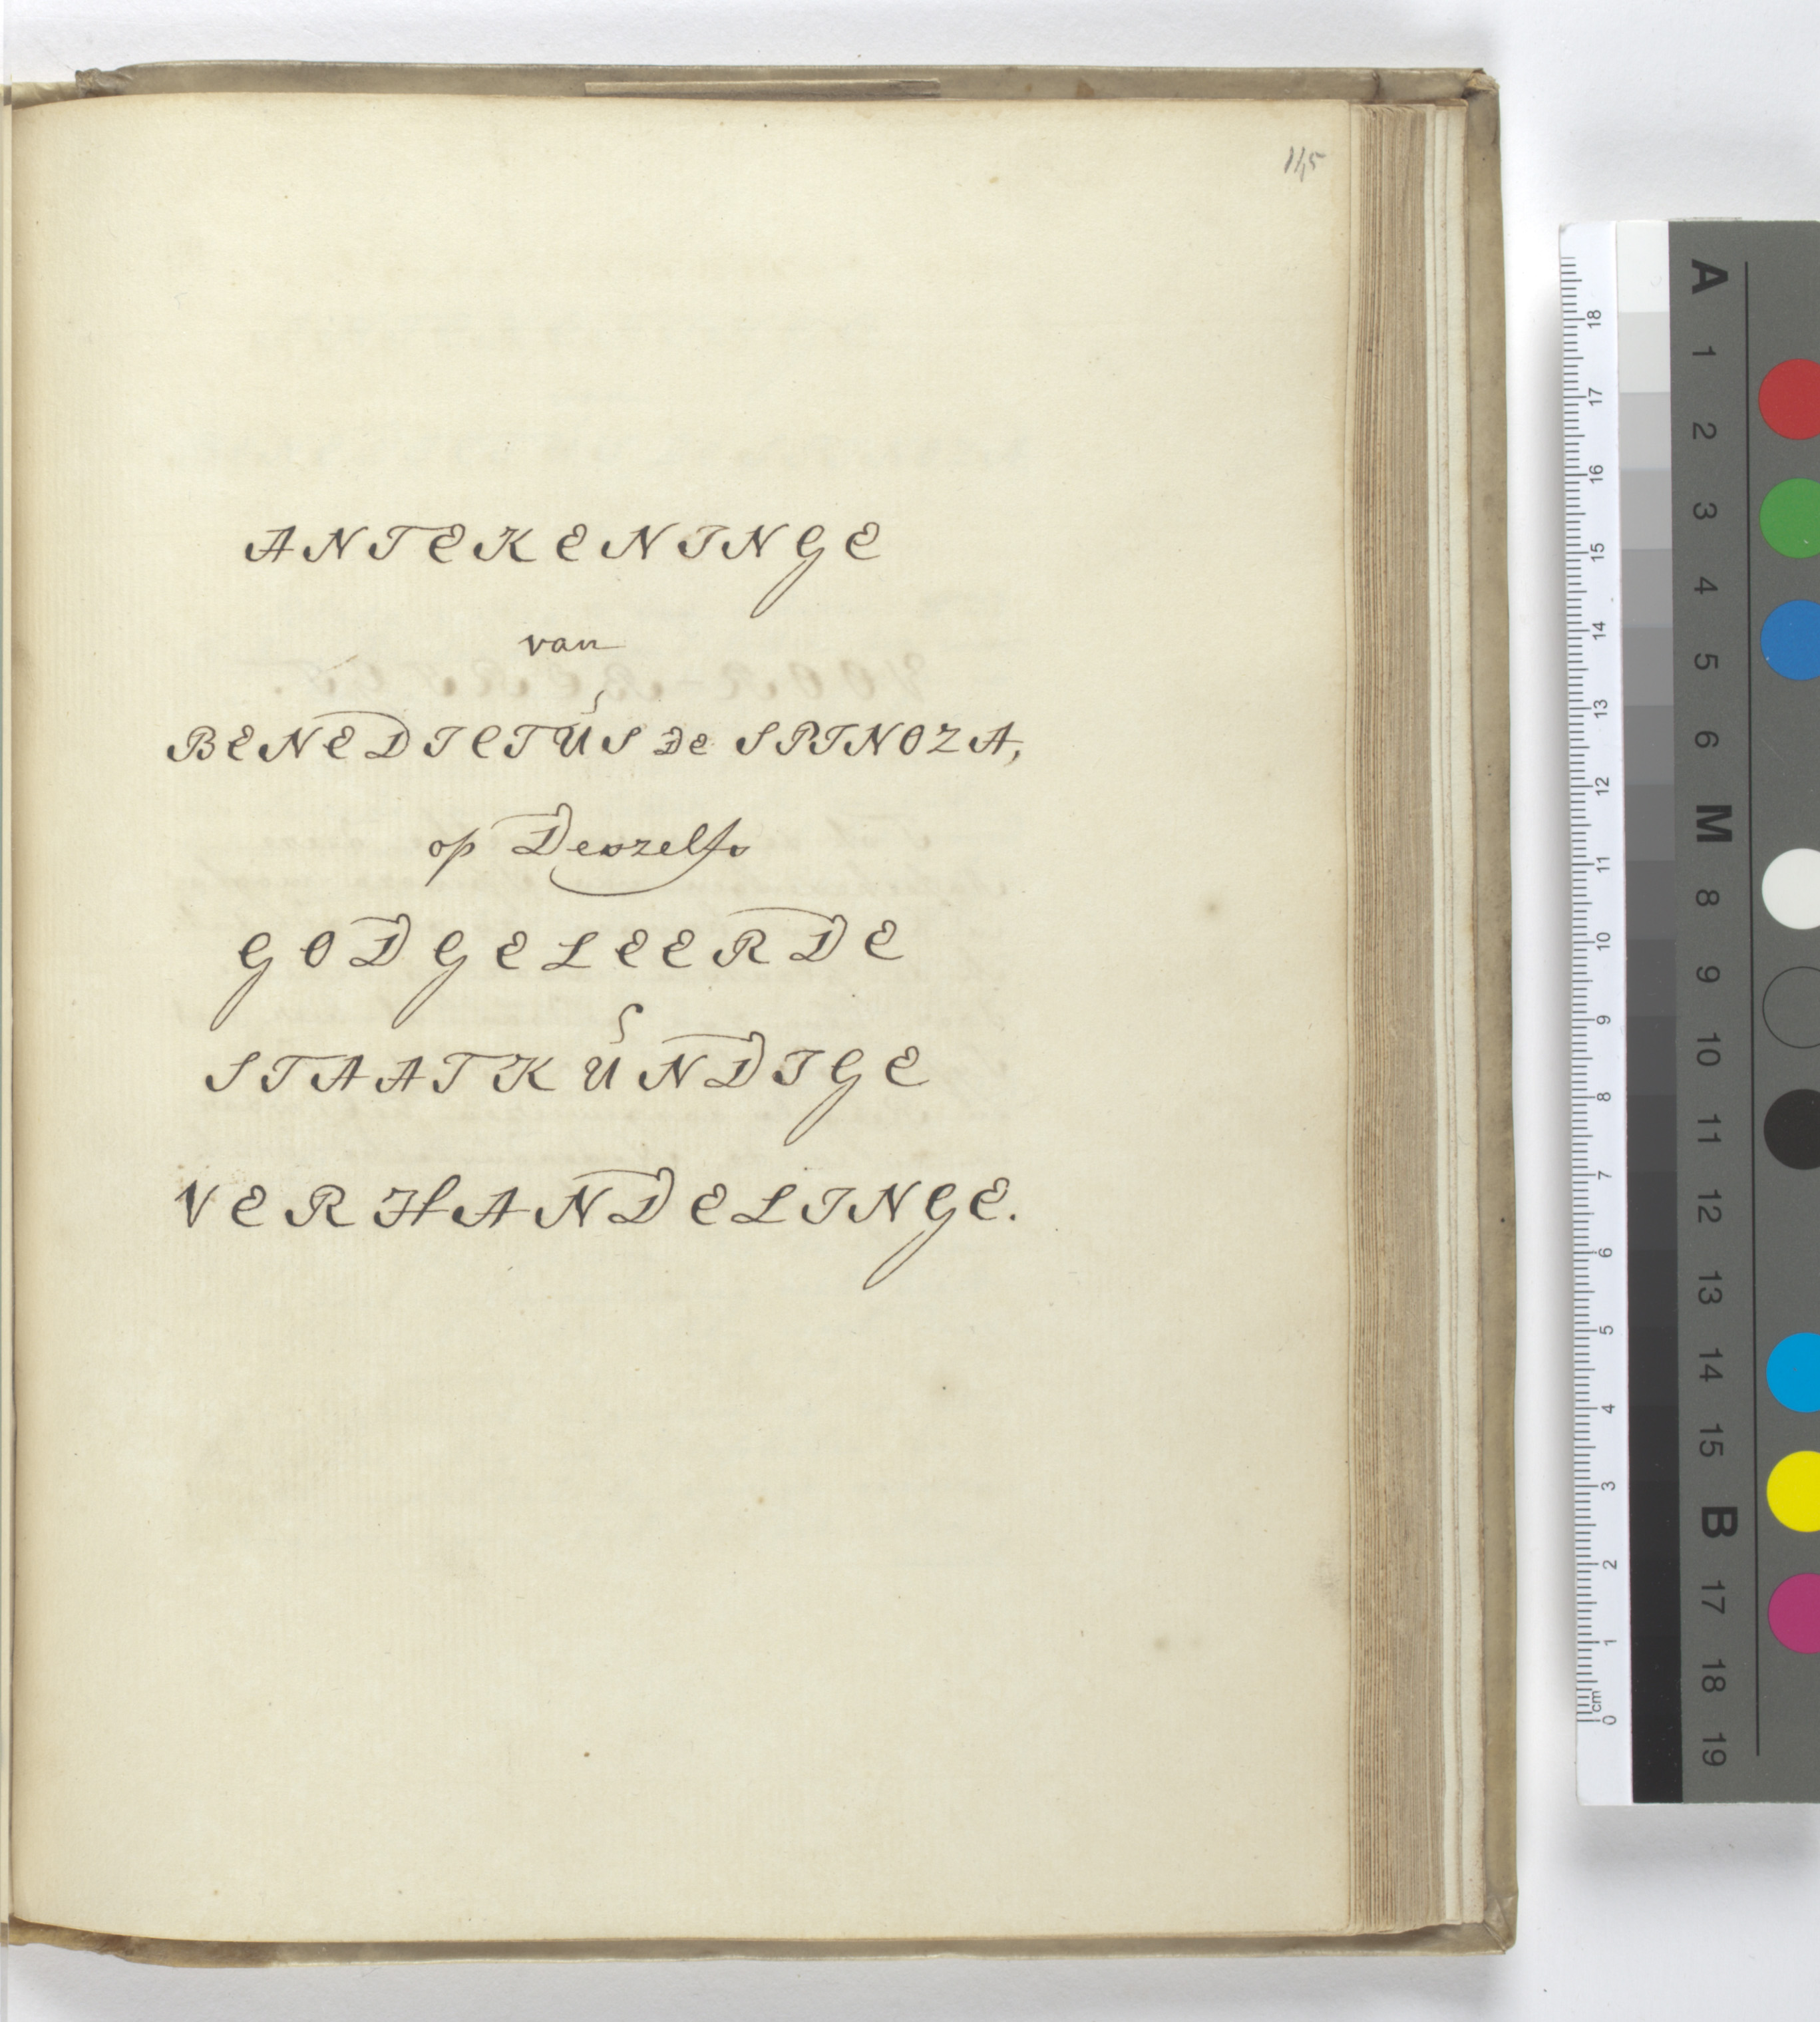 115
ANTEKENINGE
van
BENEDICTUS De SPINOZA,
op Deszelfs
GODGELEERDE
STAATKUNDIGE
VERHANDELINGE.
A 1 2 3 4 5 6 M 8 9 10 11 12 13 14 15 B 17 18 19
18 17 16 15 14 13 12 11 10 9 8 7 6 5 4 3 2 1 cm 0